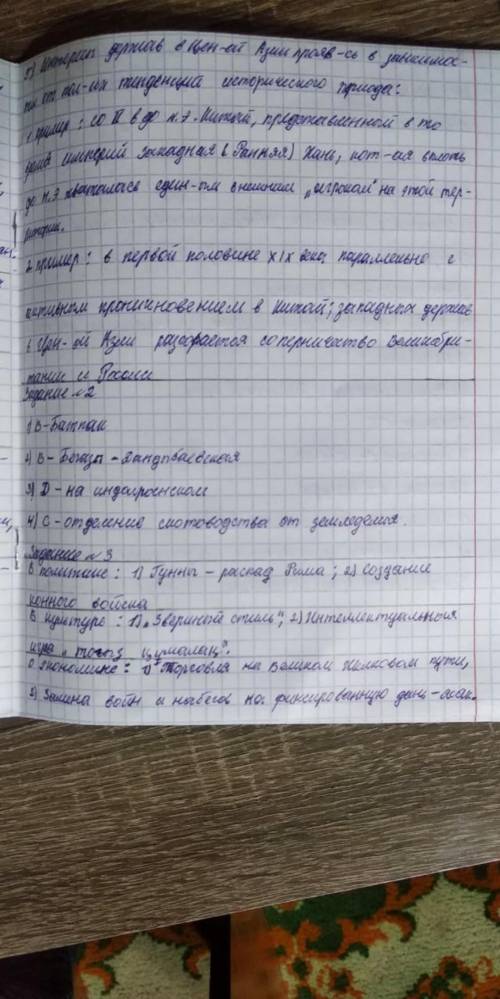 5) Интересы держав в Цен-ой Азии прояв-сь в зависимос-
ти от пол-их тенденций исторического периода:
1 пример: со II в до н.э. Китай, представленной в то
время империй Западная (Ранняя) Хань, кот-ая вплоть
до н.э являлась един-ым внешним „игроком" на этой тер-
ритории.
2 пример: в первой половине XIX века параллельно с
активным проникновением в Китай; западных держав
в Цен-ой Азии разгорается соперничество Великобри-
тании и России
Задание №2
1) В-Батпак
2) В - Бегазы - Дандыбаевская
3) D - на индоиранском
4) С - отделение скотоводства от земледелия.
Задание №3
В политике: 1) Гунны - распад Рима; 2) Создание
конного войска
В культуре: 1) „Звериный стиль"; 2) Интеллектуальная
игра „тогыз құмалақ".
В экономике: 1) Торговля на Великом Шелковом пути,
2) Замена войн и набегов на фиксированную дань